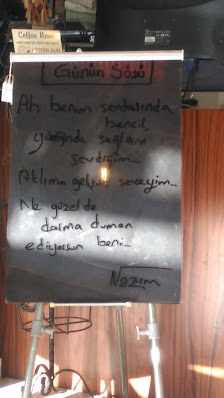 Coffee Menu
Günün Sözü
Ah benim sevdasında
bencil,
yüreğinde sağlam
sevdiğim...
Aklıma gelişini seveyim...
Ne güzel de
darma duman
ediyorsun beni...
Nazım